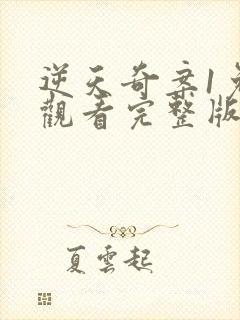 逆天奇案1
觀看完整版
夏雲起